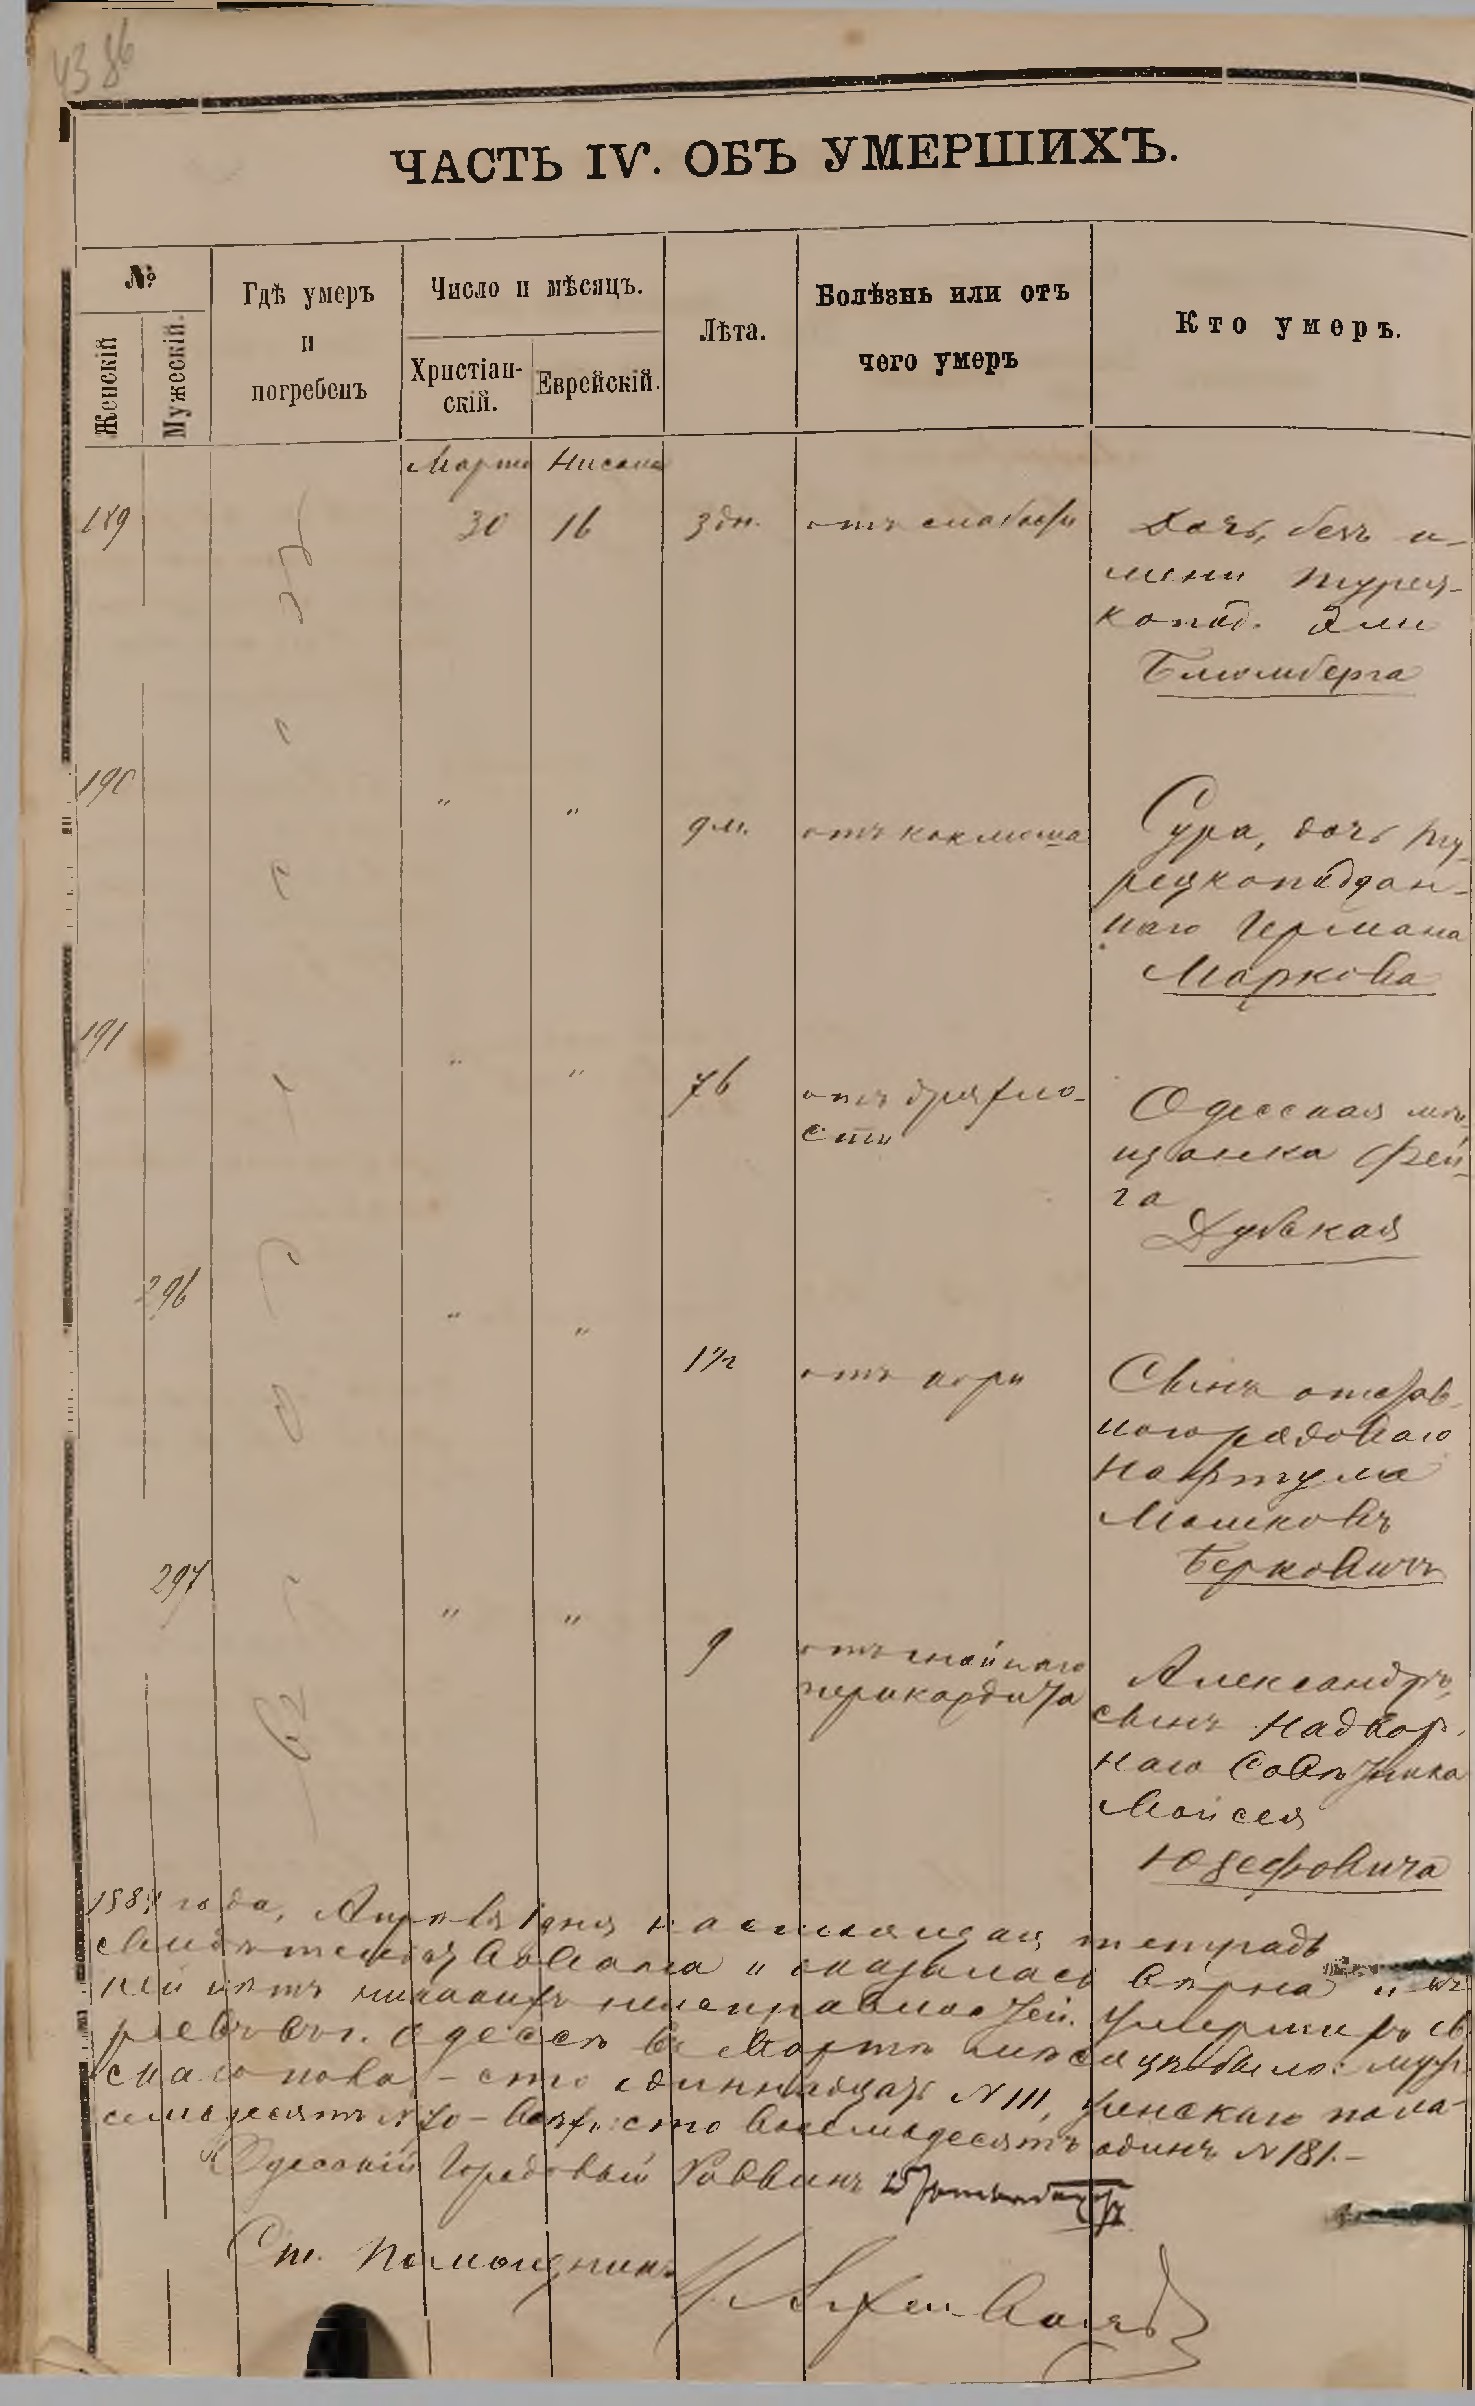 43 86
ЧАСТЬ IV. ОБЪ УМЕРШИХЪ.
№
Женскій
Мужескій.
Гдѣ умеръ
и
погребенъ
Число и мѣсяцъ.
Христіан-
скій.
Еврейскій.
Лѣта.
Болѣзнь или отъ
чего умеръ
Кто умеръ.
Марта Нисана
189 30 16 3 дн. отъ слабости
Дочь, безъ и-
мени турец-
копод. Эли
Блюмберга
190 " " 9 м. отъ коклюша
Сура, дочь ту-
рецкоподдан-
наго Германа
Маркова
191 " " 76 отъ дряхло-
сти
Одесская мѣ-
щанка Фей-
га
Дубская
296 " " 1 1/2 отъ кори
Сынъ отстав-
ного рядоваго
Нафтула
Мошковъ
Берковичъ
297 " " 9 отъ гнойнаго
перикардита
Александръ,
сынъ Надвор-
наго Совѣтника
Моисея
Юзефовича
года, Апрѣля 1 дня настоящая тетрадь
свидѣтельствована и оказалась вѣрна и въ
ней нѣтъ никакихъ неисправностей. Умершихъ ев-
реевъ въ г. Одессѣ въ Мартѣ мѣсяцѣ было: муж-
скаго пола – сто одиннадцать № 111, женскаго пола –
семьдесятъ № 70 – всѣхъ: сто восемьдесятъ одинъ № 181. –
Одесскій Городовый Раввинъ
Ст. Помощникъ